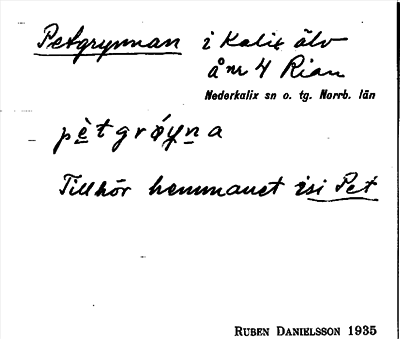 Petgrynnan i Kalix älv
å nr 4 Rian
Nederkalix sn o. tg. Norrb. län
pètgrǿyna
Tillhör hemmanet isi Pet
RUBEN DANIELSSON 1935